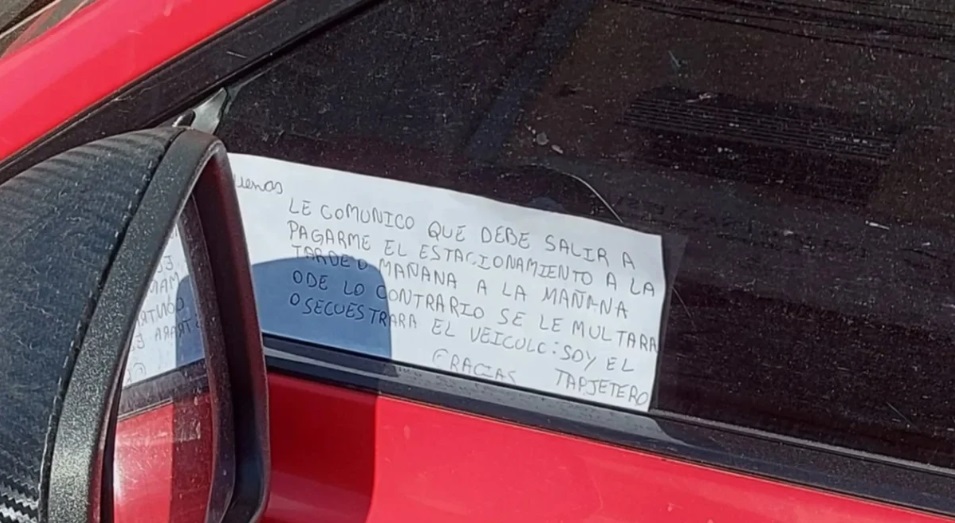 uenas
LE COMUNICO QUE DEBE SALIR A
PAGARME EL ESTACIONAMIENTO A LA
TARDE O MAÑANA A LA MAÑANA
ODE LO CONTRARIO SE LE MULTARA
O SECUESTRARA EL VEICULO: SOY EL
GRACIAS TARJETERO